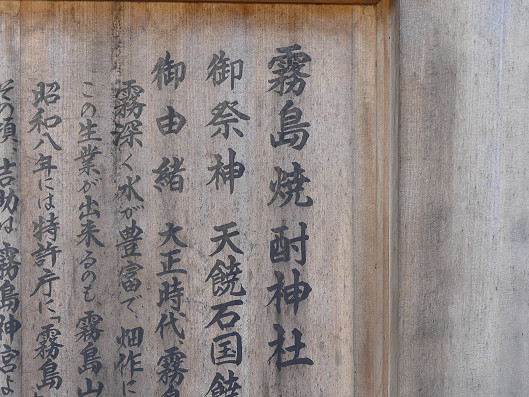 霧島焼酎神社
御祭神 天饒石国饒
御由緒 大正時代、霧島
霧深く水が豊富で、畑作に
この生業が出来るのも、霧島山
昭和八年には特許庁に「霧島
その頃、吉助は、霧島神宮よ